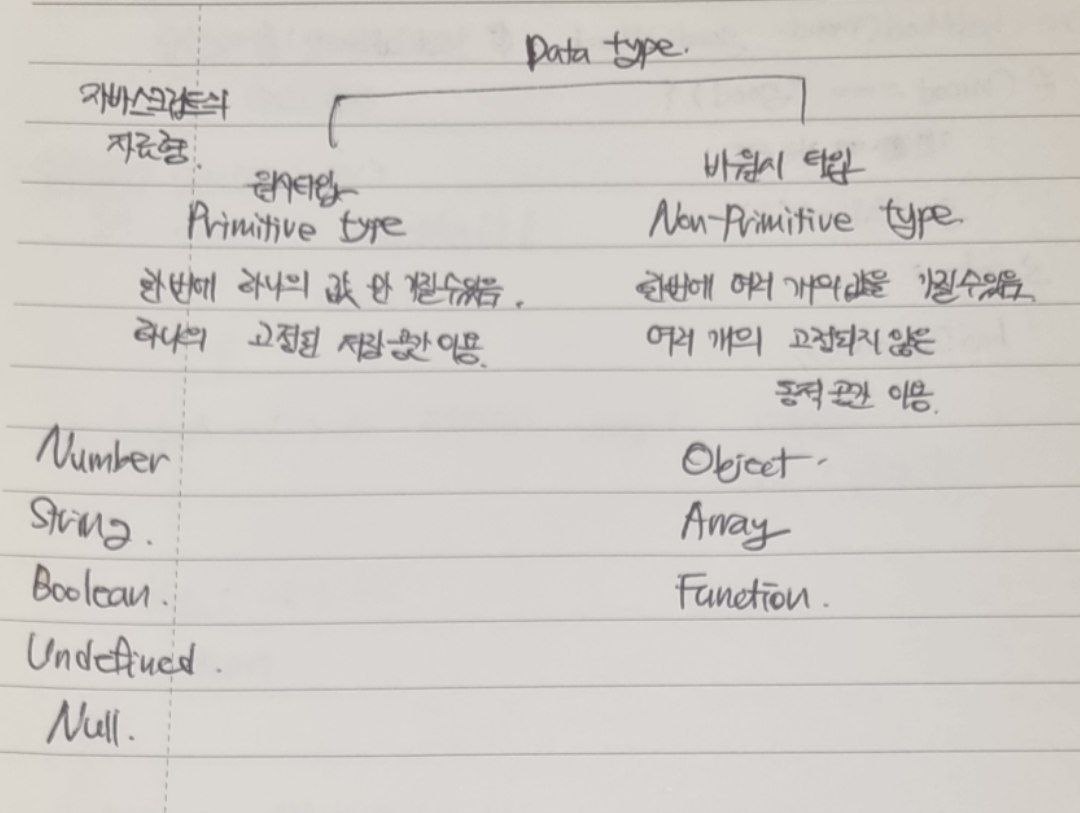 Data type.
자바스크립트의
자료형.
원시타입
Primitive type
한번에 하나의 값만 가질 수 있음.
하나의 고정된 저장 공간 이용.
비원시 타입
Non-Primitive type
한번에 여러 개의 값을 가질 수 있음.
여러 개의 고정되지 않은
동적 공간 이용.
Number
String.
Boolean.
Undefined.
Null.
Object.
Array
Function.